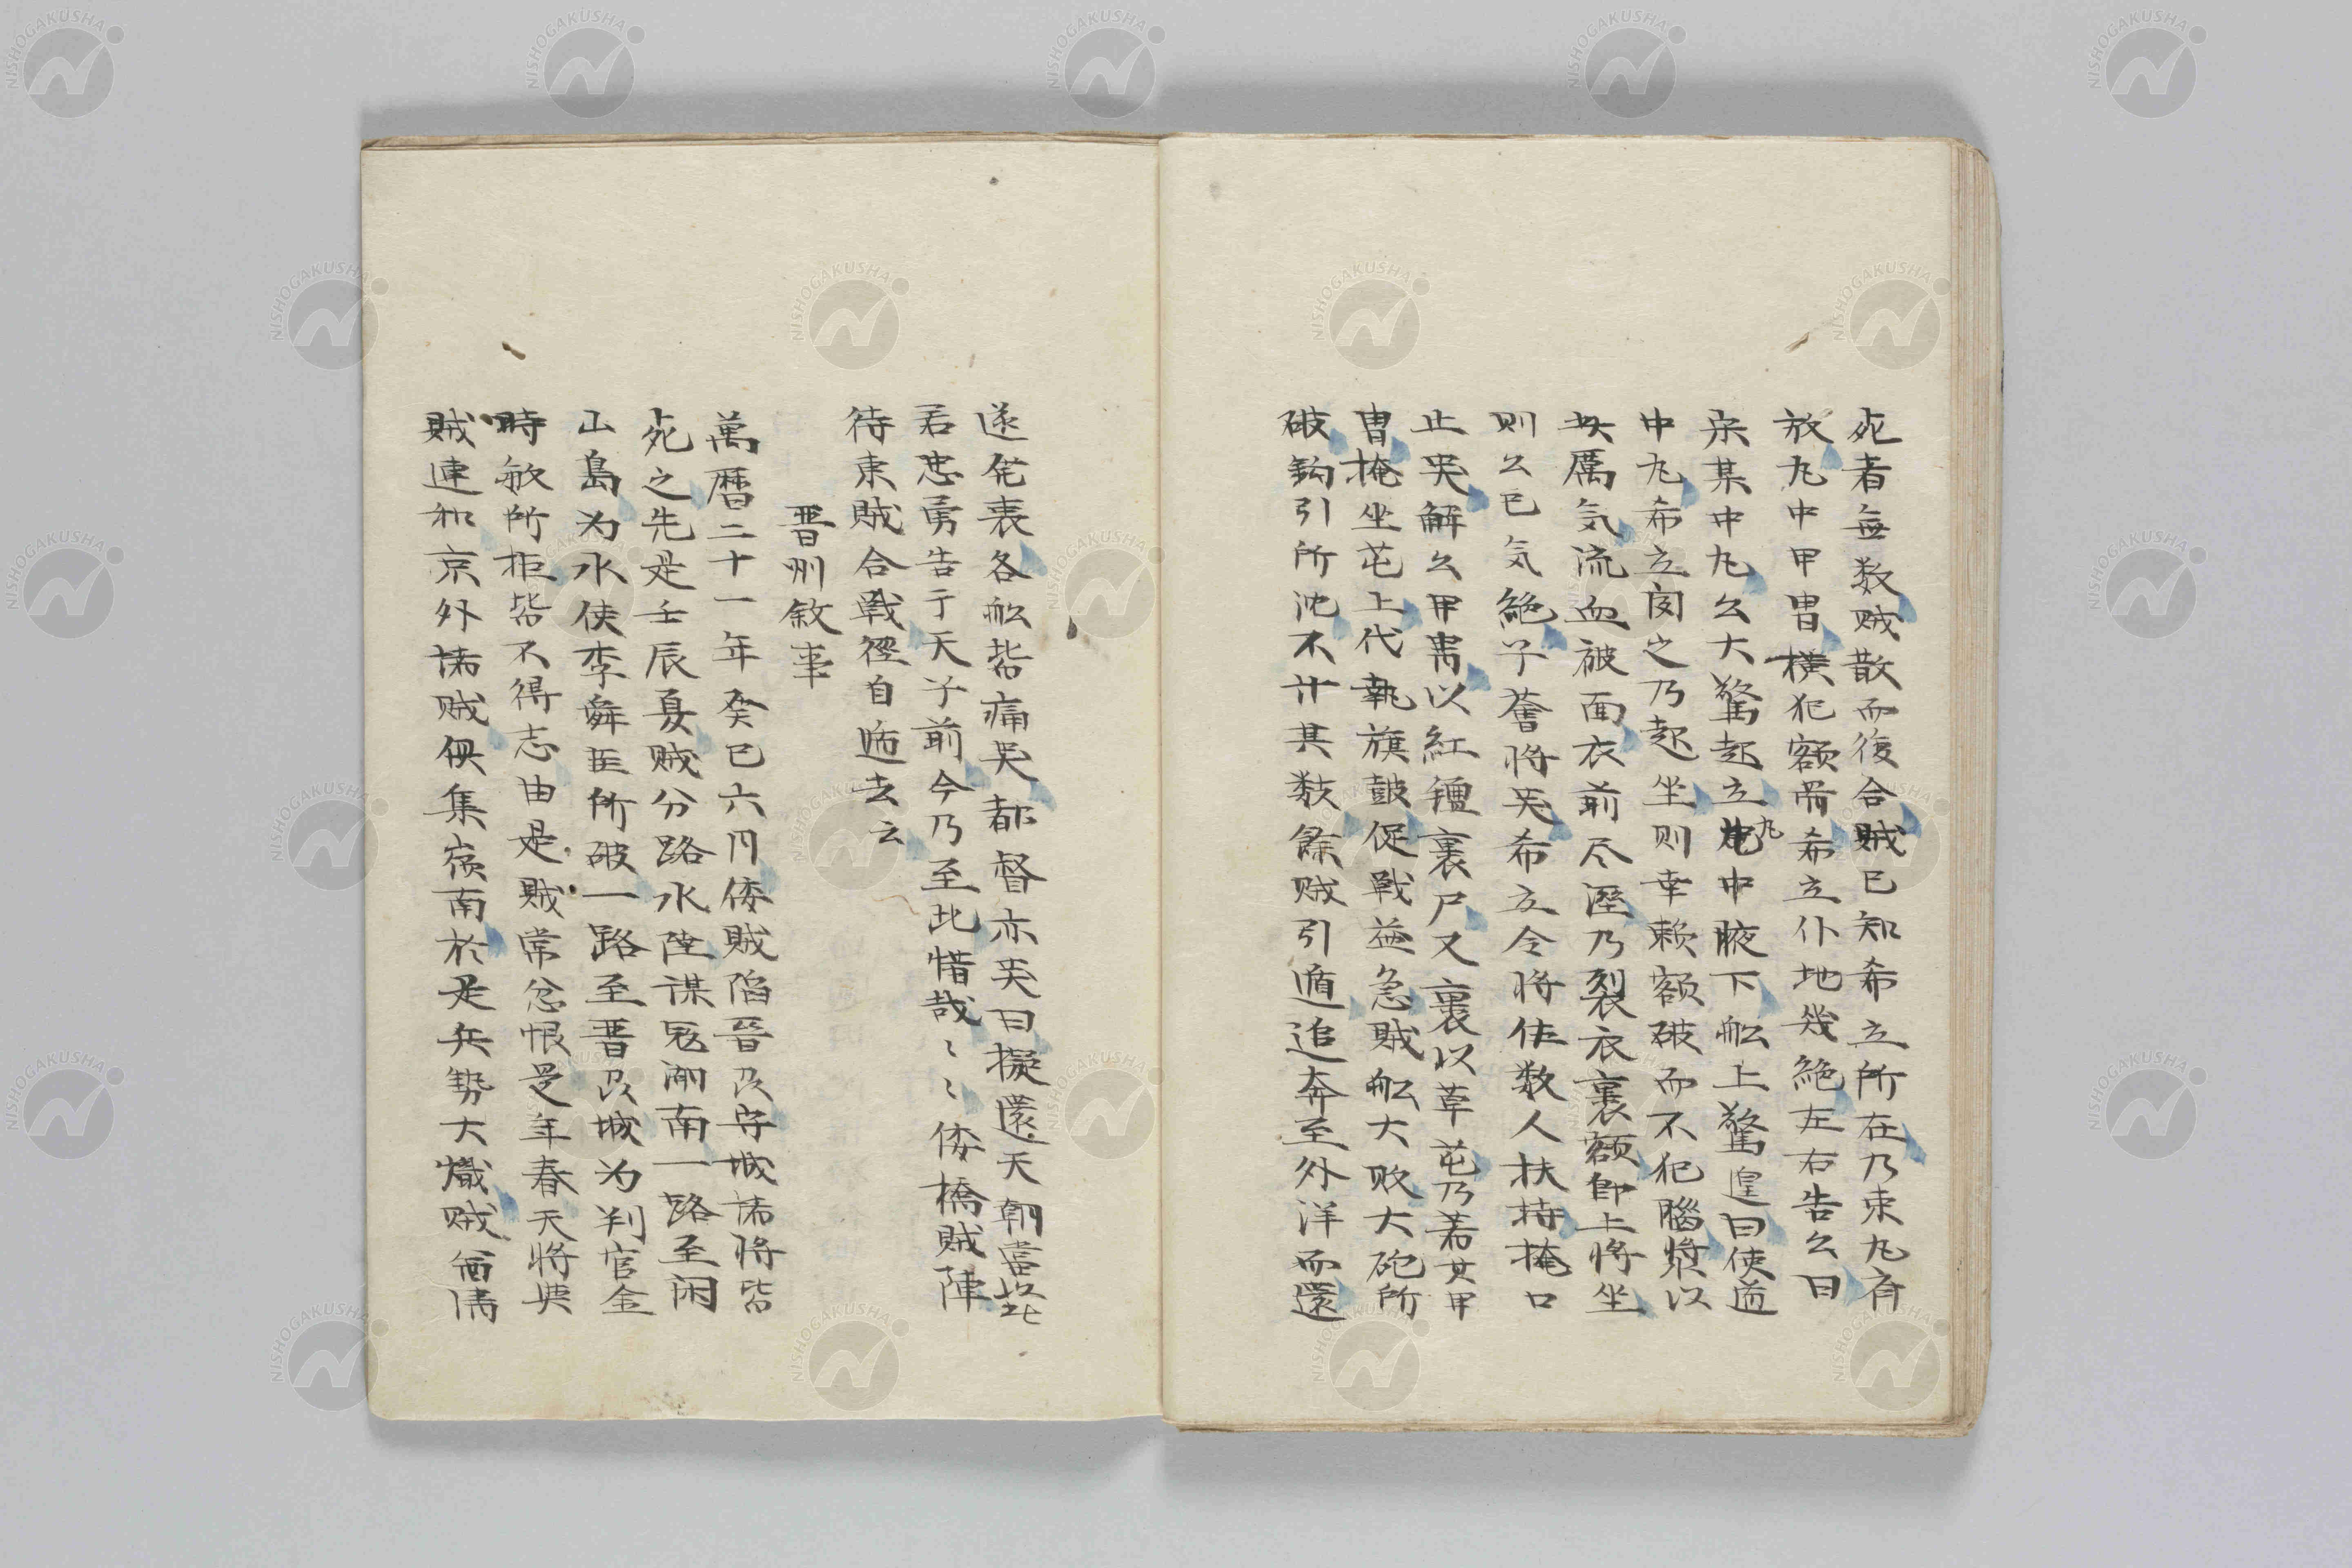 死者無数賊散而後合賊已知希立所在乃束丸斉
放丸中甲冑横犯額骨希立仆地幾絶左右告公曰
宋某中丸公大驚起立丸中腋下船上驚遑曰使道
中丸希立闻之乃起坐则幸頼额破而不犯腦漿以
大厲気流血被面衣前尽湿乃裂衣裹额即上将坐
则公已気絶子薈将哭希立令将佐数人扶持掩口
止哭解公甲冑以紅氊裹尸又裹以草芚乃着其甲
冑掩坐芚上代執旗鼓促戦益急賊船大败大砲所
破鈎引所沈不计其数餘賊引遁追奔至外洋而還
遂発丧各船皆痛哭都督亦哭曰擬還天朝當以
君忠勇告于天子前今乃至此惜哉〻〻倭橋賊陣
待東賊合戰徑自逃去云
晋州敘事
萬暦二十一年癸巳六月倭賊陷晋州守城諸将皆
死之先是壬辰夏賊分路水陸謀冦湖南一路至闲
山島为水使李舜臣所破一路至晋州城为判官金
時敏所拒皆不得志由是賊常忿恨是年春天将與
賊連和京外諸賊俱集嶺南於是兵勢大熾賊酋清